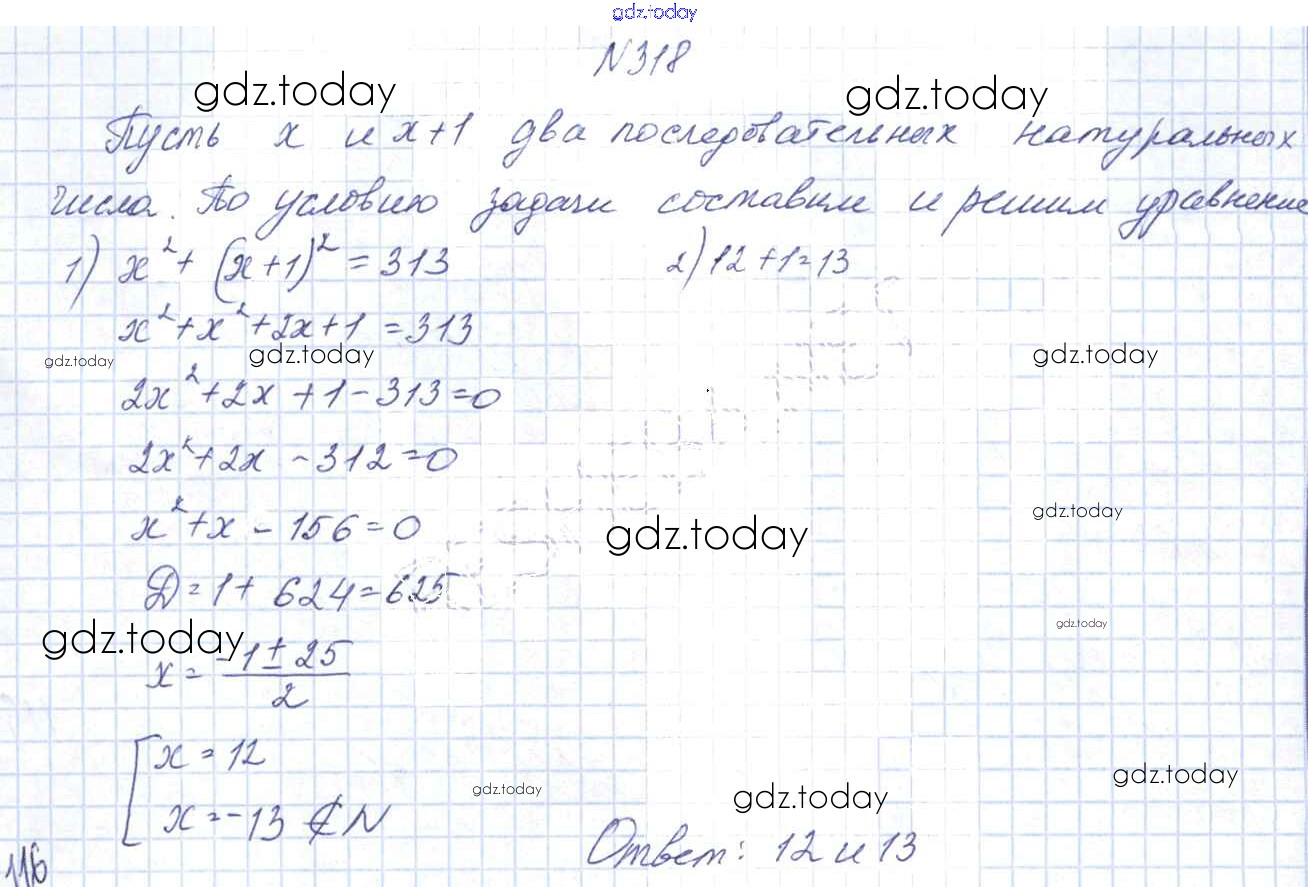 gdz.today
N318
gdz.today gdz.today
Пусть x и x+1 два последовательных натуральных
числа. По условию задачи составим и решим уравнение
1) x² + (x+1)² = 313
2) 12+1=13
x²+x²+2x+1=313
gdz.today gdz.today gdz.today
2x²+2x+1-313=0
2x²+2x-312=0
x²+x-156=0
gdz.today gdz.today
D=1+624=625
gdz.today gdz.today
x = (-1±25)/2
[x=12
x=-13 ∉ N
gdz.today gdz.today gdz.today
Ответ: 12 и 13
116